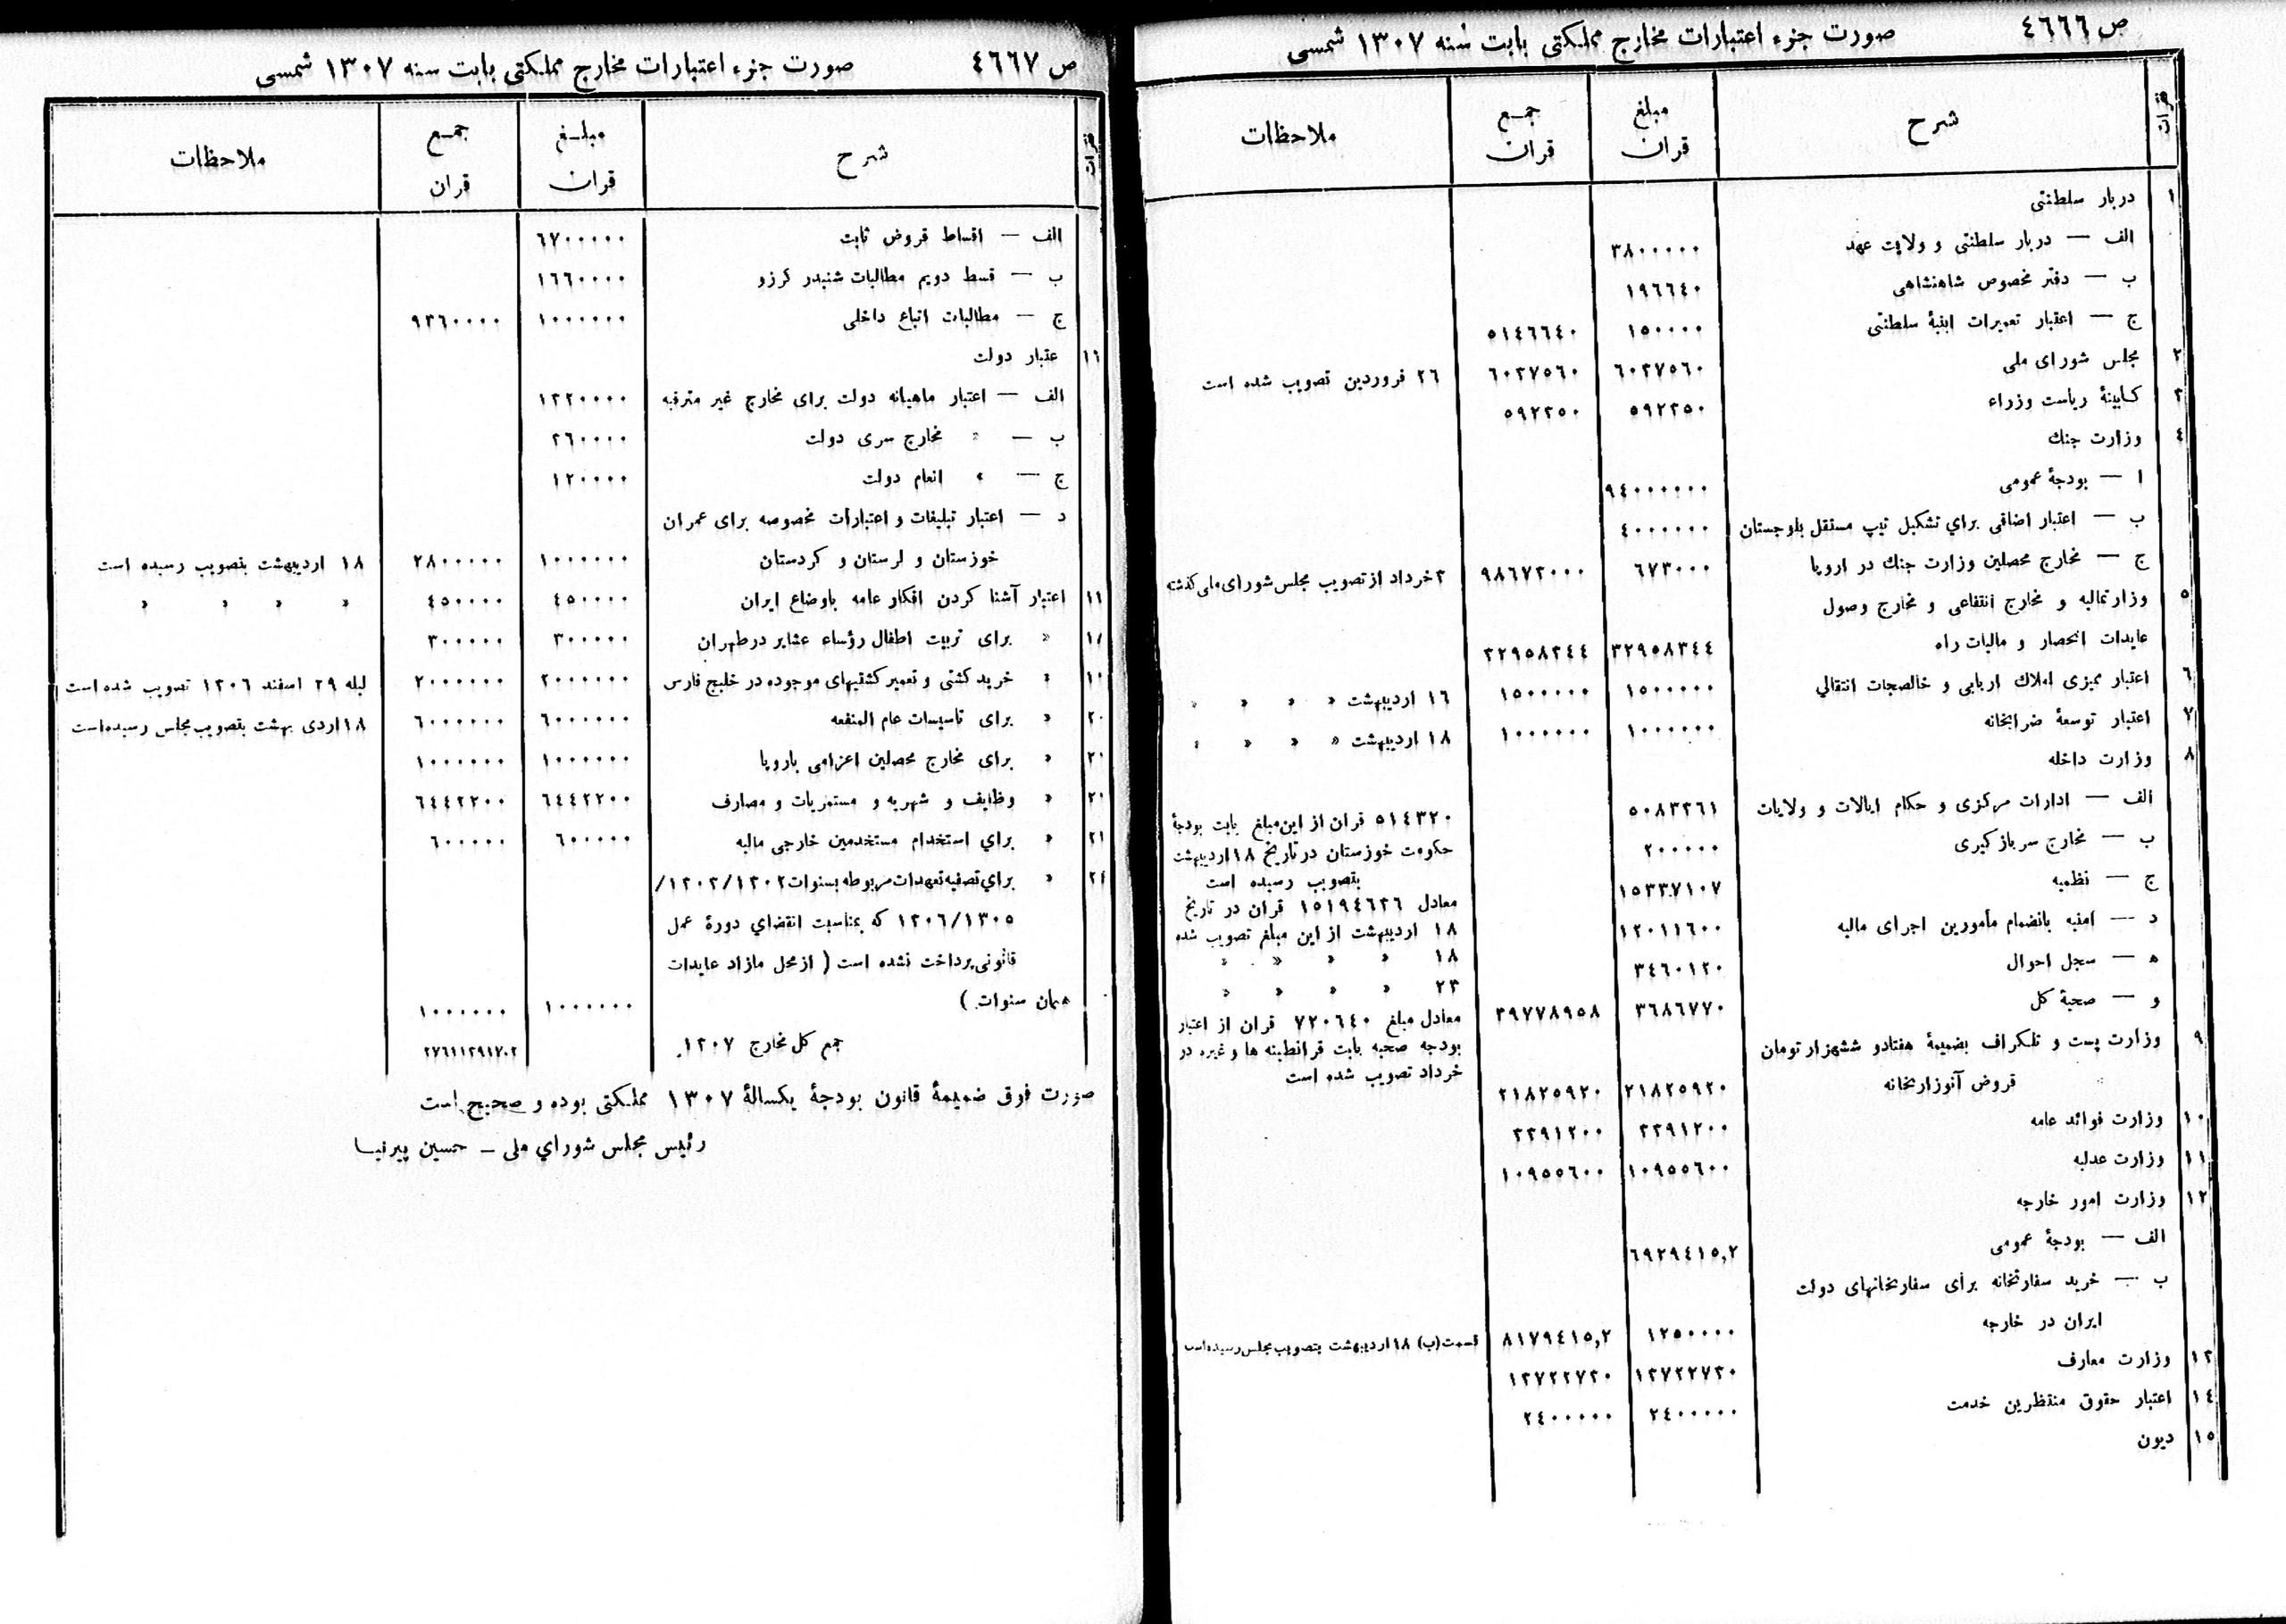 ص ٤٦٦٦ صورت جزء اعتبارات مخارج مملکتی بابت سنه ١٣٠٧ شمسی
فقرات شرح مبلغ قران جمع قران ملاحظات
١ دربار سلطنتی
الف — دربار سلطنتی و ولایت عهد ٣٨٠٠٠٠٠
ب — دفتر مخصوص شاهنشاهی ١٩٦٦٤٠
ج — اعتبار تعمیرات ابنیهٔ سلطنتی ١٥٠٠٠٠ ٥١٤٦٦٤٠
٢ مجلس شورای ملی ٦٠٣٧٥٦٠ ٦٠٣٧٥٦٠ ٢٦ فروردین تصویب شده است
٣ کابینهٔ ریاست وزراء ٥٩٢٣٥٠ ٥٩٢٣٥٠
٤ وزارت جنك
ا — بودجهٔ عمومی ٩٤٠٠٠٠٠٠
ب — اعتبار اضافی براي تشکیل تیپ مستقل بلوچستان ٤٠٠٠٠٠٠
ج — مخارج محصلین وزارت جنك در اروپا ٦٧٣٠٠٠ ٩٨٦٧٣٠٠٠ ٣ خرداد از تصویب مجلس شورای ملی گذشته
٥ وزارتمالیه و مخارج انتفاعی و مخارج وصول
عایدات انحصار و مالیات راه ٣٢٩٥٨٣٤٤ ٣٢٩٥٨٣٤٤
٦ اعتبار ممیزی املاك اربابی و خالصجات انتقالي ١٥٠٠٠٠٠ ١٥٠٠٠٠٠ ١٦ اردیبهشت » » » »
٧ اعتبار توسعهٔ ضرابخانه ١٠٠٠٠٠٠ ١٠٠٠٠٠٠ ١٨ اردیبهشت » » » »
٨ وزارت داخله
الف — ادارات مرکزی و حکام ایالات و ولایات ٥٠٨٣٣٦١ ٥١٤٣٢٠ قران از این مبلغ بابت بودجهٔ
ب — مخارج سربازگیری ٢٠٠٠٠٠ حکومت خوزستان در تاریخ ١٨ اردیبهشت
بتصویب رسیده است
ج — نظمیه ١٥٣٣٧١٠٧ معادل ١٥١٩٤٦٣٦ قران در تاریخ
د — امنیه بانضمام مأمورین اجرای مالیه ١٢٠١١٦٠٠ ١٨ اردیبهشت از این مبلغ تصویب شده
ه — سجل احوال ٣٤٦٠١٢٠ ١٨ » » » »
٢٣ » » » »
و — صحیهٔ کل ٣٦٨٦٧٧٠ ٣٩٧٧٨٩٥٨ معادل مبلغ ٧٢٠٦٤٠ قران از اعتبار
٩ وزارت پست و تلگراف بضمیمهٔ هفتادو ششهزار تومان بودجه صحیه بابت قرانطینه ها و غیره در
خرداد تصویب شده است
قروض آنوزارتخانه ٢١٨٢٥٩٢٠ ٢١٨٢٥٩٢٠
١٠ وزارت فوائد عامه ٣٣٩١٢٠٠ ٣٣٩١٢٠٠
١١ وزارت عدلیه ١٠٩٥٥٦٠٠ ١٠٩٥٥٦٠٠
١٢ وزارت امور خارجه
الف — بودجهٔ عمومی ٦٩٢٩٤١٥,٢
ب — خرید سفارتخانه برای سفارتخانهای دولت
ایران در خارجه ١٢٥٠٠٠٠ ٨١٧٩٤١٥,٢ قسمت (ب) ١٨ اردیبهشت بتصویب مجلس رسیده است
١٣ وزارت معارف ١٣٧٢٢٧٣٠ ١٣٧٢٢٧٣٠
١٤ اعتبار حقوق منتظرین خدمت ٢٤٠٠٠٠٠ ٢٤٠٠٠٠٠
١٥ دیون
ص ٤٦٦٧ صورت جزء اعتبارات مخارج مملکتی بابت سنه ١٣٠٧ شمسی
فقرات شرح مبلغ قران جمع قران ملاحظات
الف — اقساط قروض ثابت ٦٧٠٠٠٠٠
ب — قسط دویم مطالبات شنیدر کرزو ١٦٦٠٠٠٠
ج — مطالبات اتباع داخلی ١٠٠٠٠٠٠ ٩٣٦٠٠٠٠
١٦ عتبار دولت
الف — اعتبار ماهیانه دولت برای مخارج غیر مترقبه ١٣٢٠٠٠٠
ب — » مخارج سری دولت ٣٦٠٠٠٠
ج — » انعام دولت ١٢٠٠٠٠
د — اعتبار تبلیغات و اعتبارات مخصوصه برای عمران
خوزستان و لرستان و کردستان ١٠٠٠٠٠٠ ٢٨٠٠٠٠٠ ١٨ اردیبهشت بتصویب رسیده است
اعتبار آشنا کردن افکار عامه باوضاع ایران ٤٥٠٠٠٠ ٤٥٠٠٠٠ » » » » »
» برای تربیت اطفال رؤساء عشایر در طهران ٣٠٠٠٠٠ ٣٠٠٠٠٠
» خرید کشتی و تعمیر کشتیهای موجوده در خلیج فارس ٢٠٠٠٠٠٠ ٢٠٠٠٠٠٠ لیله ٢٩ اسفند ١٣٠٦ تصویب شده است
٢٠ » برای تاسیسات عام المنفعه ٦٠٠٠٠٠٠ ٦٠٠٠٠٠٠ ١٨ اردی بهشت بتصویب مجلس رسیده است
» برای مخارج محصلین اعزامی باروپا ١٠٠٠٠٠٠ ١٠٠٠٠٠٠
» وظایف و شهریه و مستمریات و مصارف ٦٤٤٢٢٠٠ ٦٤٤٢٢٠٠
» براي استخدام مستخدمین خارجی مالیه ٦٠٠٠٠٠ ٦٠٠٠٠٠
٢٤ » براي تصفیه تعهدات مربوطه بسنوات ١٣٠٢/١٣٠٣/
١٣٠٦/١٣٠٥ که بمناسبت انقضاي دورهٔ عمل
قانونی پرداخت نشده است ( از محل مازاد عایدات
همان سنوات ) ١٠٠٠٠٠٠ ١٠٠٠٠٠٠
جمع کل مخارج ١٣٠٧
صورت فوق ضمیمهٔ قانون بودجهٔ یکسالهٔ ١٣٠٧ مملکتی بوده و صحیح است
رئیس مجلس شوراي ملی – حسین پیرنیا